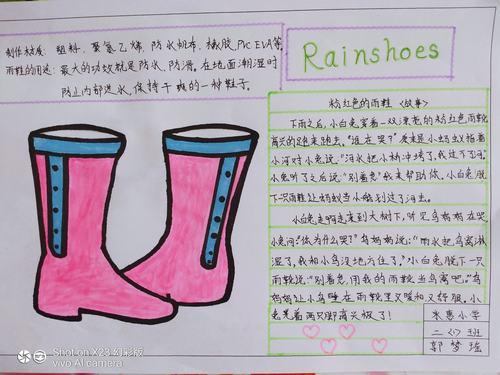 制作材质: 塑料、聚氯乙烯、防水帆布、橡胶, PVC EVA等。
雨鞋的用途: 最大的功效就是防水、防滑。在地面潮湿时
防止内部进水,保持干爽的一种鞋子。
Rainshoes
粉红色的雨鞋 《故事》
下雨之后,小白兔穿着一双漂亮的粉红色雨靴
高兴的跑来跑去,“谁在哭?”原来是小蚂蚁指着
小河对小兔说:“河水把小桥冲塌了,我过不了河。”
小兔听了之后说:“别着急!我来帮助你。小白兔脱
下一只雨靴让蚂蚁当小船划过了河去。
小白兔走啊走来到大树下,听见鸟妈妈在哭
小兔问:“你为什么哭?”鸟妈妈说:“雨水把鸟窝淋
湿了,我和小鸟没地方住了。”小白兔脱下一只
雨靴说:“别着急,用我的雨靴当鸟窝吧。”鸟
妈妈让小鸟睡在雨靴里又暖和又舒服。小
兔光着两只脚高兴极了!
惠小学
二(1)班
郭梦
Shot on X23 幻彩版
vivo AI camera